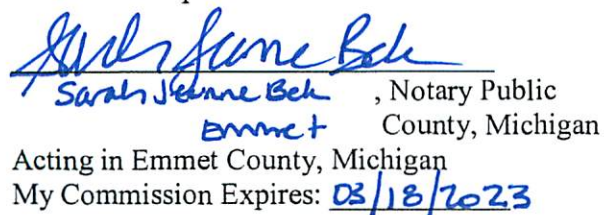 Sarah Jeanne Bek
Sarah Jeanne Bek , Notary Public
Emmet County, Michigan
Acting in Emmet County, Michigan
My Commission Expires: 03/18/2023